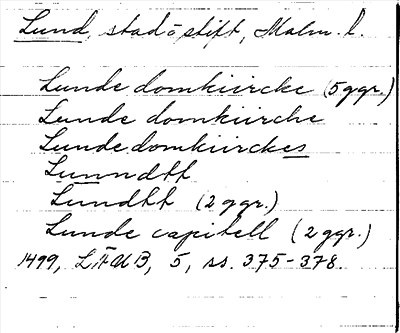 Lund, stad o stift, Malm. l.
Lunde domkiircke (5 ggr.)
Lunde domkiirche
Lunde domkiirckes
Lunndtt
Lundtt (2 ggr.)
Lunde capitell (2 ggr.)
1499, LÄUB, 5, ss. 375-378.